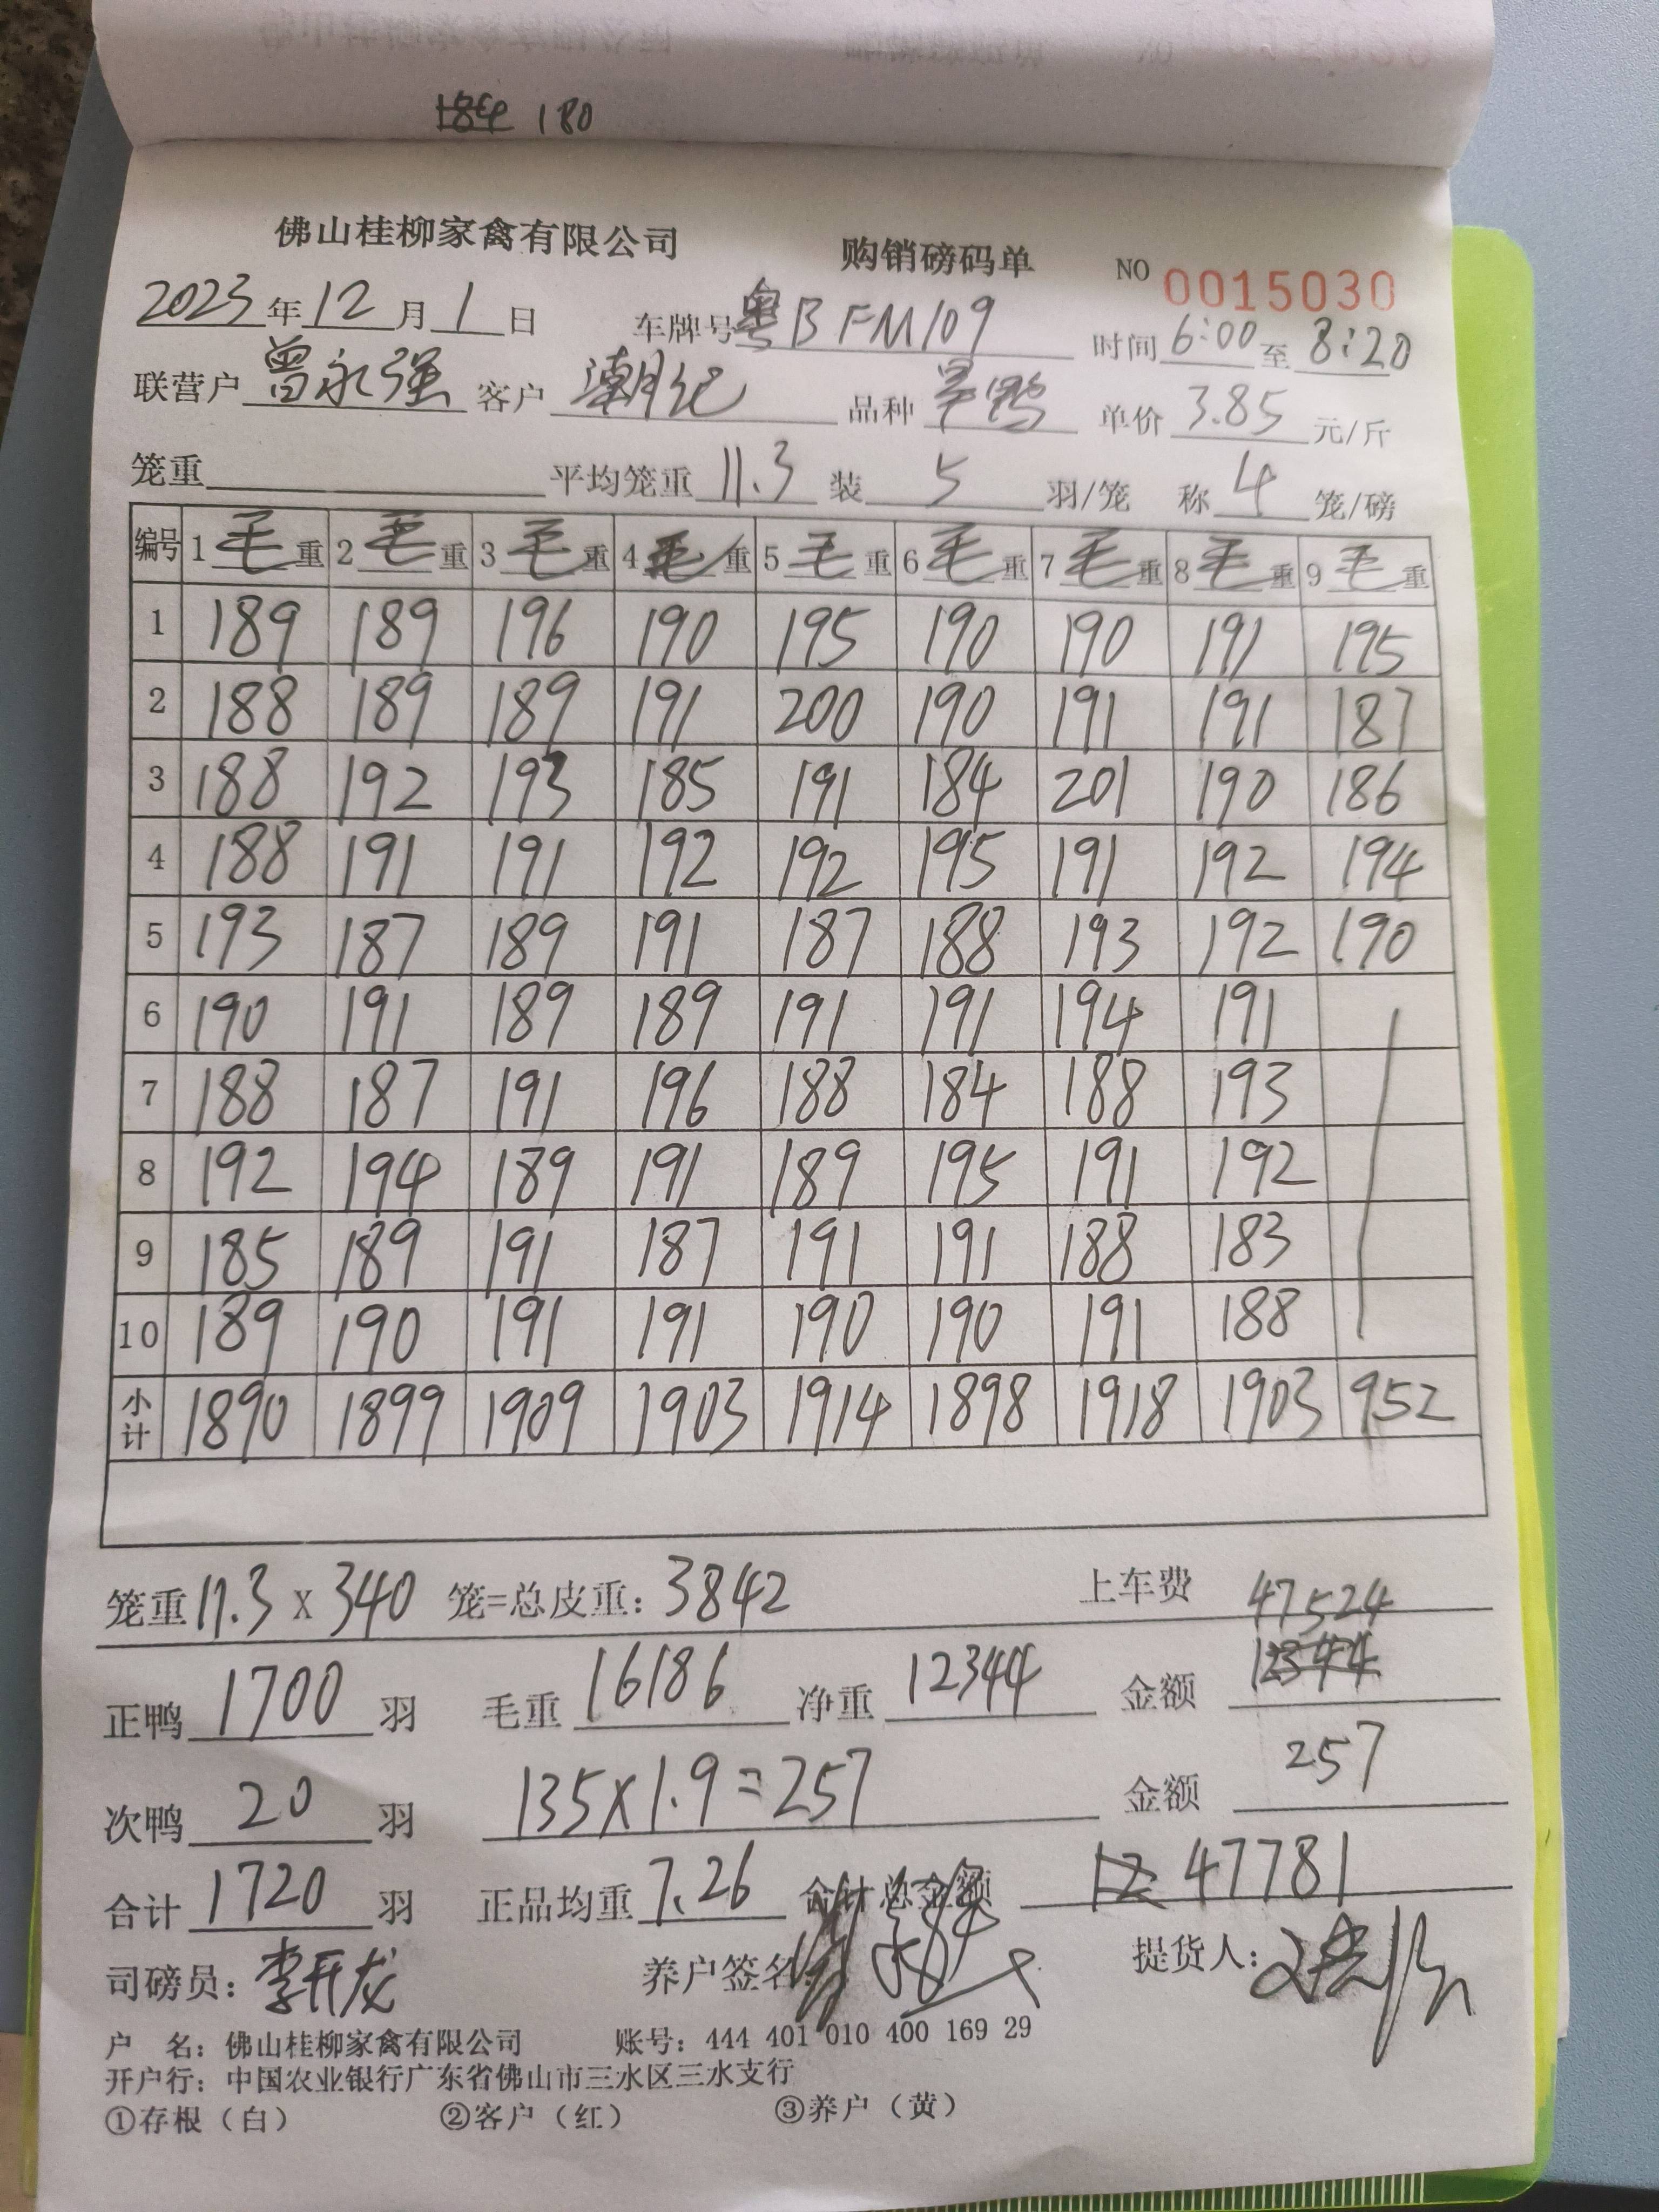 180
佛山桂柳家禽有限公司 购销磅码单 NO 0015030
2023年12月1日 车牌号粤BFM109 时间6:00至8:20
联营户曾永强 客户潮记 品种 单价3.85元/斤
笼重 平均笼重11.3 装5羽/笼 称4笼/磅
编号 1毛重 2毛重 3毛重 4毛重 5毛重 6毛重 7毛重 8毛重 9毛重
1 189 189 196 190 195 190 190 191 195
2 188 189 189 191 200 190 191 191 187
3 188 192 193 185 191 184 201 190 186
4 188 191 191 192 192 195 191 192 194
5 193 187 189 191 187 188 193 192 190
6 190 191 189 189 191 191 194 191
7 188 187 191 196 188 184 188 193
8 192 194 189 191 189 195 191 192
9 185 189 191 187 191 191 188 183
10 189 190 191 191 190 190 191 188
小计 1890 1899 1909 1903 1914 1898 1918 1903 952
笼重11.3 X 340 笼=总皮重：3842 上车费
47524
正鸭1700羽 毛重16186 净重12344 金额12344
次鸭20羽 135x1.9=257 金额257
合计1720羽 正品均重7.26 合计总金额 12 47781
司磅员：李开龙 养户签名： 提货人：
户 名：佛山桂柳家禽有限公司 账号：444 401 010 400 169 29
开户行：中国农业银行广东省佛山市三水区三水支行
①存根（白） ②客户（红） ③养户（黄）